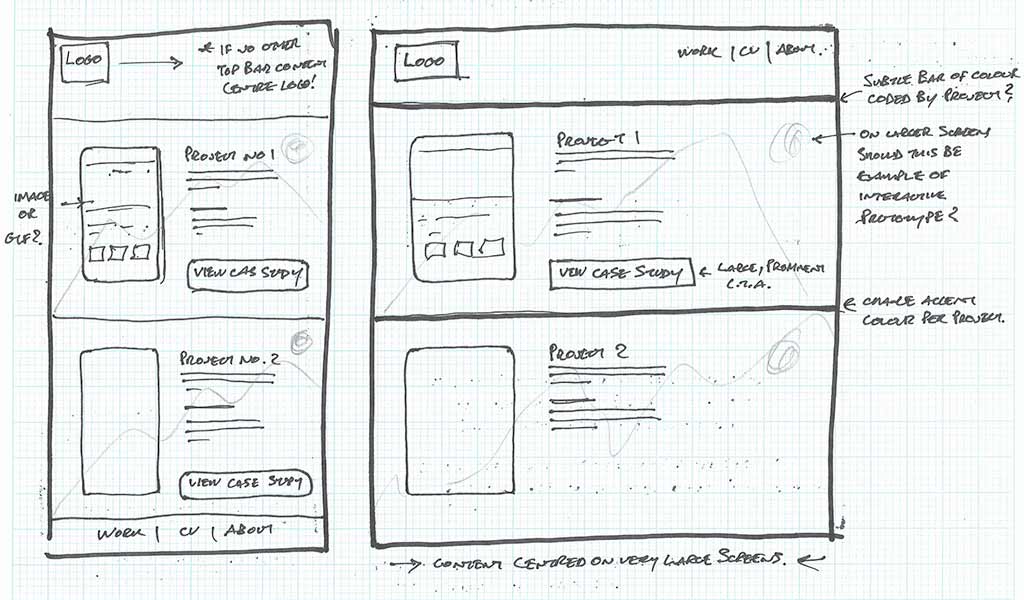 LOGO
* IF NO OTHER
TOP BAR CONTENT
CENTRE LOGO!
PROJECT NO 1
IMAGE
OR
GIF?
VIEW CAS STUDY
PROJECT NO. 2
VIEW CASE STUDY
WORK | CV | ABOUT
LOGO
WORK | CV | ABOUT.
SUBTLE BAR OF COLOUR
CODED BY PROJECT?
PROJECT 1
ON LARGER SCREENS
SHOULD THIS BE
EXAMPLE OF
INTERACTIVE
PROTOTYPE?
VIEW CASE STUDY
LARGE, PROMINENT
C.T.A.
CHANGE ACCENT
COLOUR PER PROJECT.
PROJECT 2
CONTENT CENTRED ON VERY LARGE SCREENS.